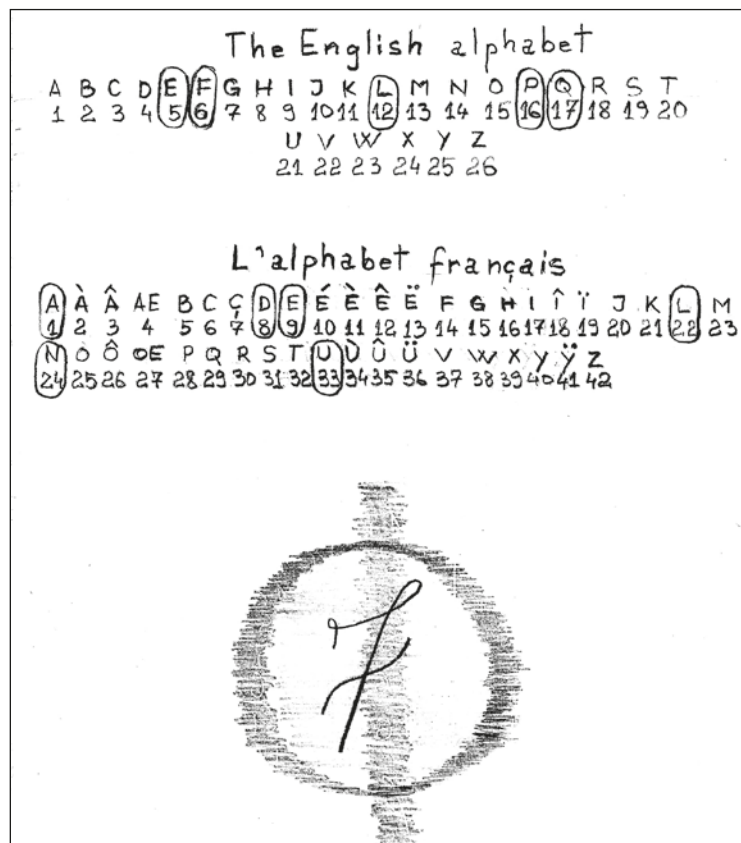 The English alphabet
A B C D E F G H I J K L M N O P Q R S T
1 2 3 4 5 6 7 8 9 10 11 12 13 14 15 16 17 18 19 20
U V W X Y Z
21 22 23 24 25 26
L'alphabet français
A À Â AE B C Ç D E É È Ê Ë F G H I Î Ï J K L M
1 2 3 4 5 6 7 8 9 10 11 12 13 14 15 16 17 18 19 20 21 22 23
N O Ô OE P Q R S T U Ù Û Ü V W X Y Ÿ Z
24 25 26 27 28 29 30 31 32 33 34 35 36 37 38 39 40 41 42
7